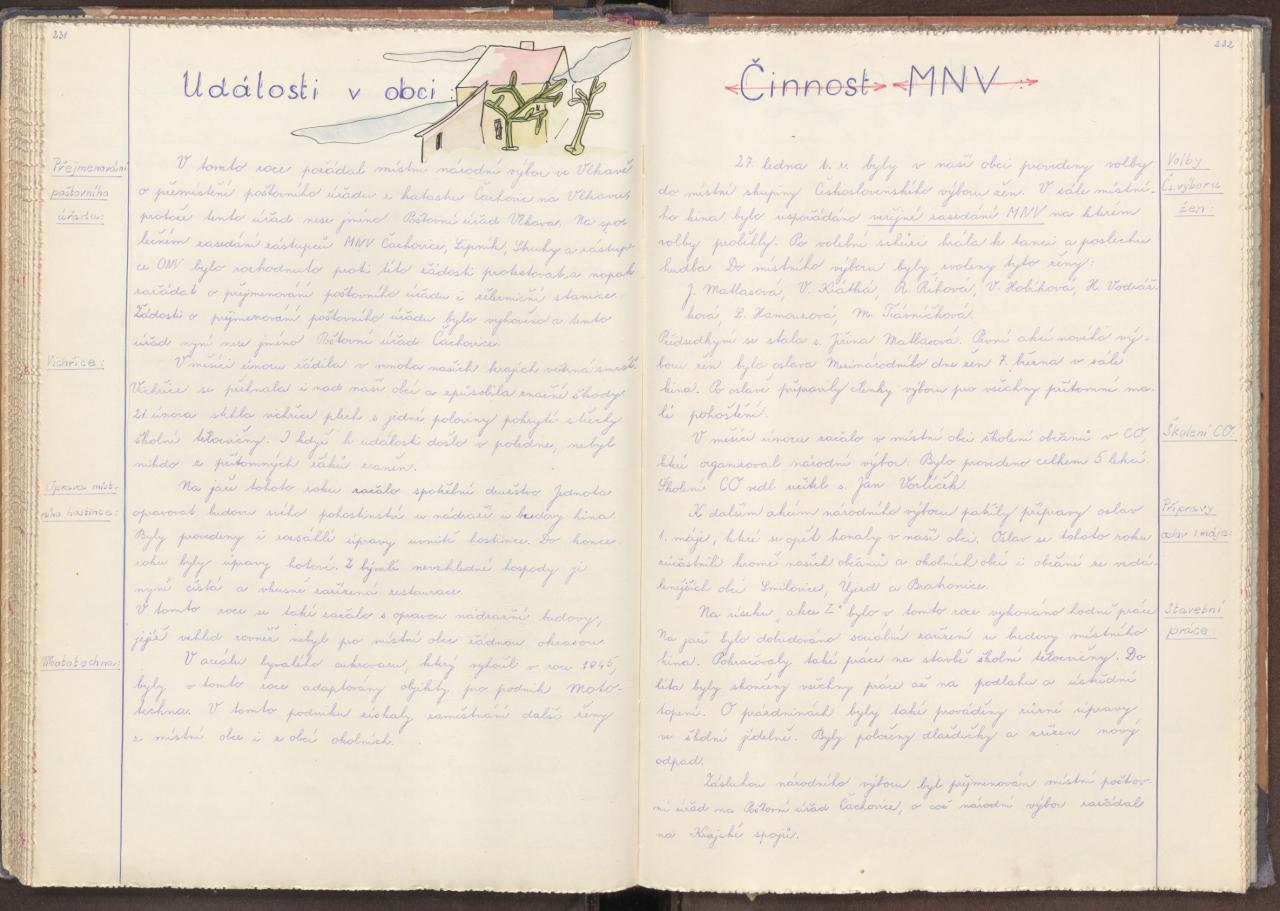 231
Události v obci:
Přejmenování
poštovního
úřadu:
V tomto roce požádal místní národní výbor ve Vlkavě
o přemístění poštovního úřadu z katastru Čachovic na Vlkavu,
protože tento úřad nese jméno Poštovní úřad Vlkava. Na spo-
lečném zasedání zástupců MNV Čachovice, Lipník, Struhy a zástup-
ce ONV bylo rozhodnuto proti této žádosti protestovat a naopak
zažádat o přejmenování poštovního úřadu i železniční stanice.
Žádosti o přejmenování poštovního úřadu bylo vyhověno a tento
úřad nyní nese jméno Poštovní úřad Čachovice.
Vichřice:
V měsíci únoru řádila v mnoha našich krajích větrná smršť.
Vichřice se přehnala i nad naší obcí a způsobila značné škody.
21. února strhla vichřice plech s jedné poloviny pokryté střechy
školní tělocvičny. I když k události došlo v poledne, nebyl
nikdo z přítomných žáků zraněn.
Oprava míst-
ního hostince:
Na jaře tohoto roku začalo spotřební družstvo Jednota
opravovat budovu svého pohostinství u nádraží u budovy kina.
Byly provedeny i rozsáhlé úpravy uvnitř hostince. Do konce
roku byly úpravy hotové. Z bývalé nevzhledné hospody je
nyní čistá a vkusně zařízená restaurace.
V tomto roce se také začalo s opravou nádražní budovy,
jejíž vzhled rovněž nebyl pro místní obec žádnou okrasou.
Mototechna:
V areálu bývalého cukrovaru, který vyhořel v roce 1945,
byly v tomto roce adaptovány objekty pro podnik Moto-
techna. V tomto podniku získaly zaměstnání další ženy
z místní obce i z obcí okolních.
232
Činnost MNV
Volby
Čs. výboru
žen:
27. ledna t. r. byly v naší obci provedeny volby
do místní skupiny Československého výboru žen. V sále místní-
ho kina bylo uspořádáno veřejné zasedání MNV na kterém
volby proběhly. Po volební schůzi hrála k tanci a poslechu
hudba. Do místního výboru byly zvoleny tyto ženy:
J. Matlasová, V. Krátká, R. Říhová, V. Hobíková, H. Vodráž-
ková, L. Hamouzová, M. Trávníčková.
Předsedkyní se stala s. Jiřina Matlasová. První akcí nového vý-
boru žen byla oslava Mezinárodního dne žen 7. března v sále
kina. Po oslavě připravily členky výboru pro všechny přítomné ma-
lé pohoštění.
Školení CO.
V měsíci únoru začalo v místní obci školení občanů v CO,
které organizoval národní výbor. Bylo provedeno celkem 5 lekcí.
Školení CO vedl učitel s. Jan Vorlíček.
Přípravy
oslav 1. máje:
K dalším akcím národního výboru patřily přípravy oslav
1. máje, které se opět konaly v naší obci. Oslav se tohoto roku
zúčastnili kromě našich občanů a okolních obcí i občané ze vzdá-
lenějších obcí Smilovice, Újezd a Bratronice.
Stavební
práce:
Na úseku „akce Z" bylo v tomto roce vykonáno hodně práce.
Na jaře bylo dobudováno sociální zařízení u budovy místního
kina. Pokračovaly také práce na stavbě školní tělocvičny. Do
léta byly skončeny všechny práce až na podlahu a ústřední
topení. O prázdninách byly také prováděny různé úpravy
ve školní jídelně. Byly položeny dlaždičky a zřízen nový
odpad.
Zásluhou národního výboru byl přejmenován místní poštov-
ní úřad na Poštovní úřad Čachovice, o což národní výbor zažádal
na Krajské spoje.